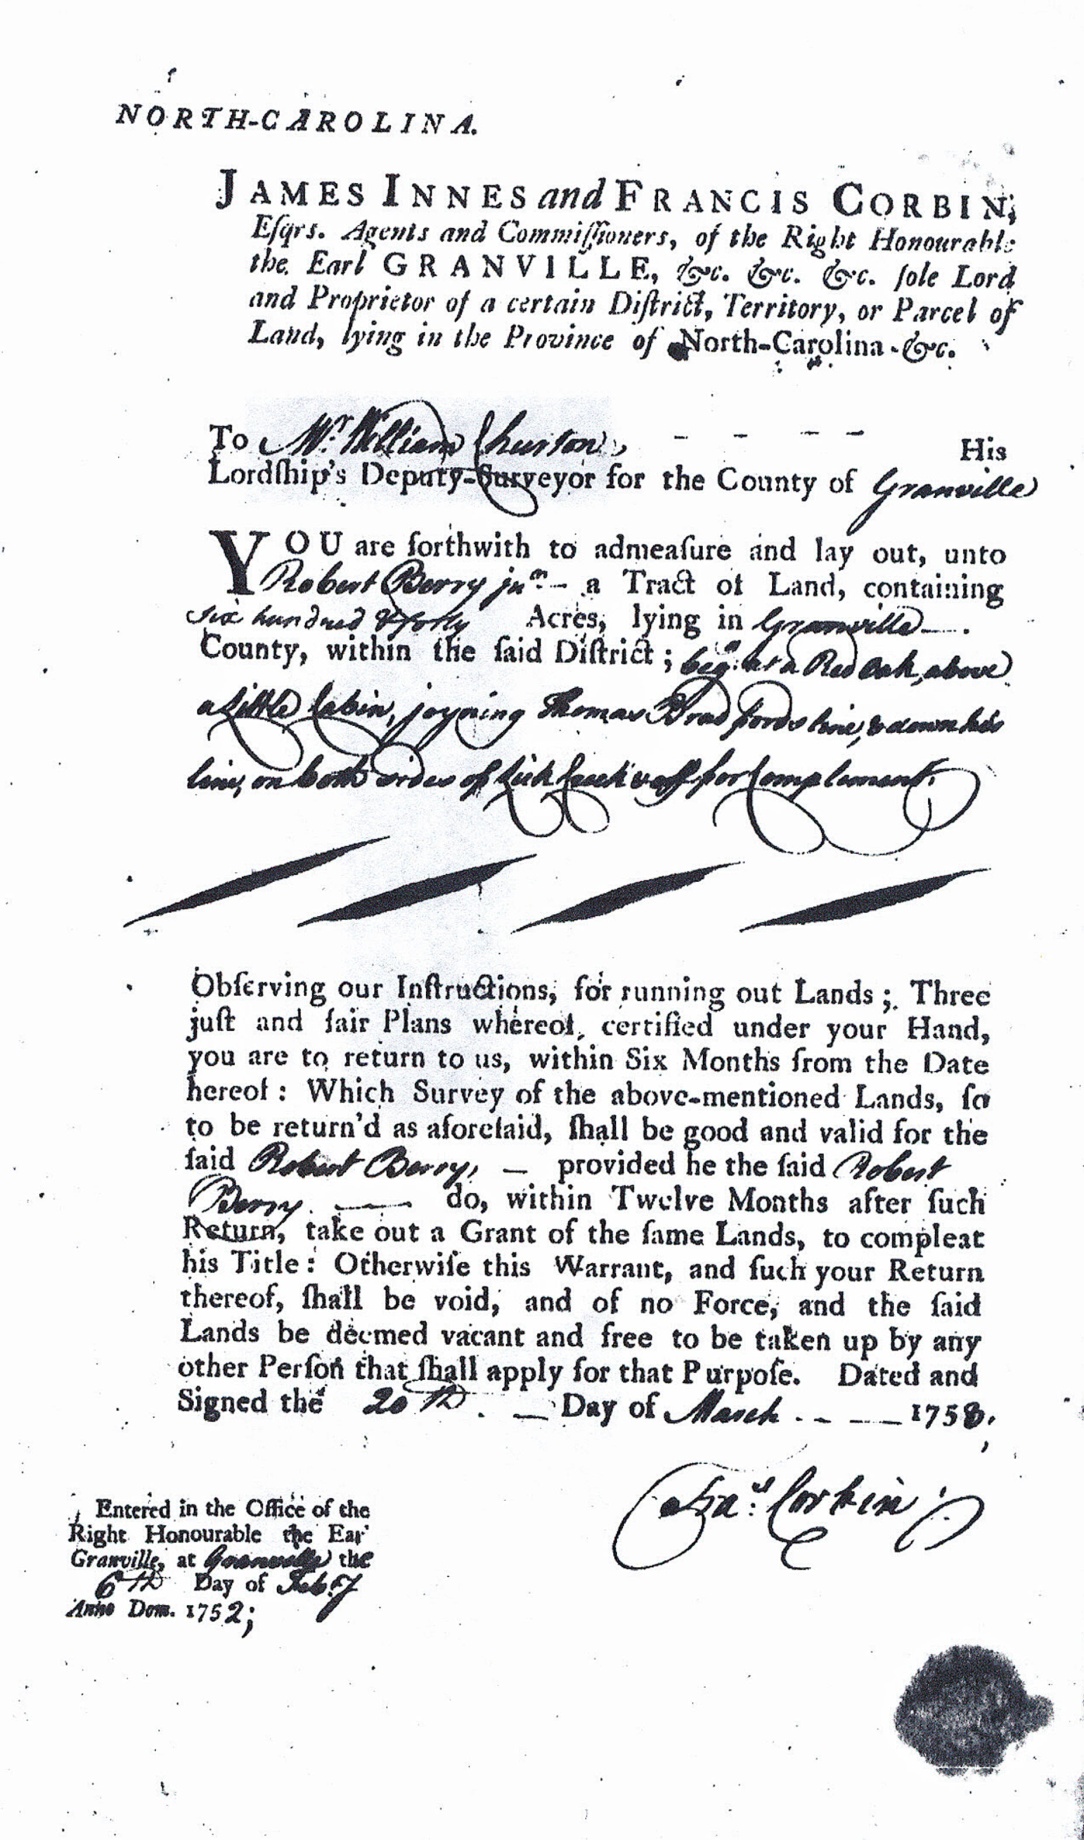 NORTH-CAROLINA.
JAMES INNES and FRANCIS CORBIN,
Eſqrs. Agents and Commiſſioners, of the Right Honourable
the Earl GRANVILLE, &c. &c. &c. ſole Lord
and Proprietor of a certain Diſtrict, Territory, or Parcel of
Land, lying in the Province of North-Carolina &c.
To Mr. William Churton, - - - - His
Lordſhip's Deputy-Surveyor for the County of Granville
YOU are forthwith to admeaſure and lay out, unto
Robert Berry junr. - a Tract of Land, containing
Six hundred & forty Acres, lying in Granville -.
County, within the ſaid Diſtrict; beg. at a Red Oak, above
a Little Cabin, joyning Thomas Bradfords line, & down his
line, on both sides of Lick Creek for Complement.
Obſerving our Inſtructions, for running out Lands; Three
juſt and fair Plans whereof, certified under your Hand,
you are to return to us, within Six Months from the Date
hereof: Which Survey of the above-mentioned Lands, ſo
to be return'd as aforeſaid, ſhall be good and valid for the
ſaid Robert Berry, — provided he the ſaid Robert
Berry — do, within Twelve Months after ſuch
Return, take out a Grant of the ſame Lands, to compleat
his Title: Otherwiſe this Warrant, and ſuch your Return
thereof, ſhall be void, and of no Force, and the ſaid
Lands be deemed vacant and free to be taken up by any
other Perſon that ſhall apply for that Purpoſe. Dated and
Signed the 20th. — Day of March - - - — 1758.
Fras. Corbin
Entered in the Office of the
Right Honourable the Earl
Granville, at Granville the
6th Day of Feby
Anno Dom. 1752;